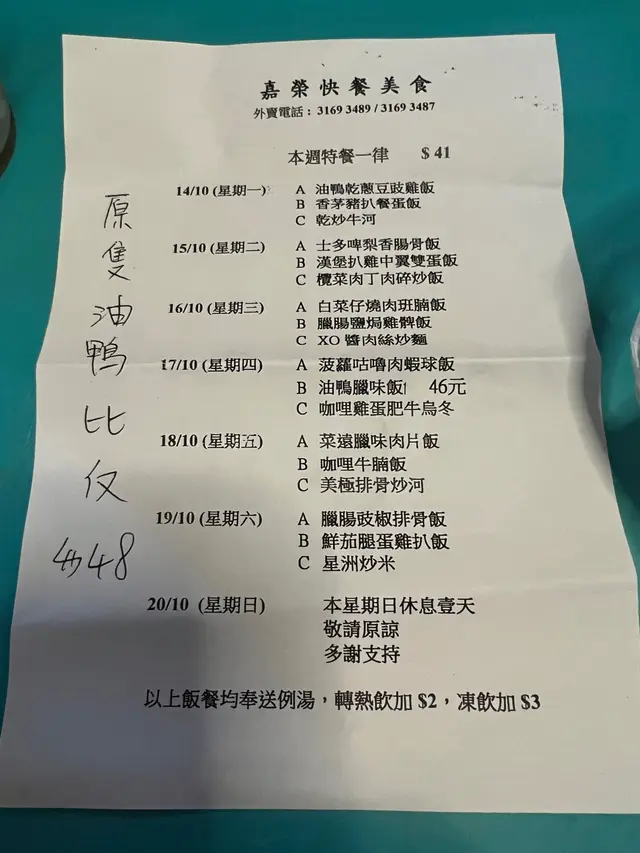 嘉榮快餐美食
外賣電話：3169 3489 / 3169 3487
本週特餐一律 $ 41
14/10 (星期一) A 油鴨乾蔥豆豉雞飯
B 香茅豬扒餐蛋飯
C 乾炒牛河
15/10 (星期二) A 士多啤梨香腸骨飯
B 漢堡扒雞中翼雙蛋飯
C 欖菜肉丁肉碎炒飯
16/10 (星期三) A 白菜仔燒肉班腩飯
B 臘腸鹽焗雞髀飯
C XO 醬肉絲炒麵
17/10 (星期四) A 菠蘿咕嚕肉蝦球飯
B 油鴨臘味飯 46元
C 咖哩雞蛋肥牛烏冬
18/10 (星期五) A 菜遠臘味肉片飯
B 咖哩牛腩飯
C 美極排骨炒河
19/10 (星期六) A 臘腸豉椒排骨飯
B 鮮茄腿蛋雞扒飯
C 星洲炒米
20/10 (星期日) 本星期日休息壹天
敬請原諒
多謝支持
以上飯餐均奉送例湯，轉熱飲加 $2，凍飲加 $3
原
隻
油
鴨
比
仅
48